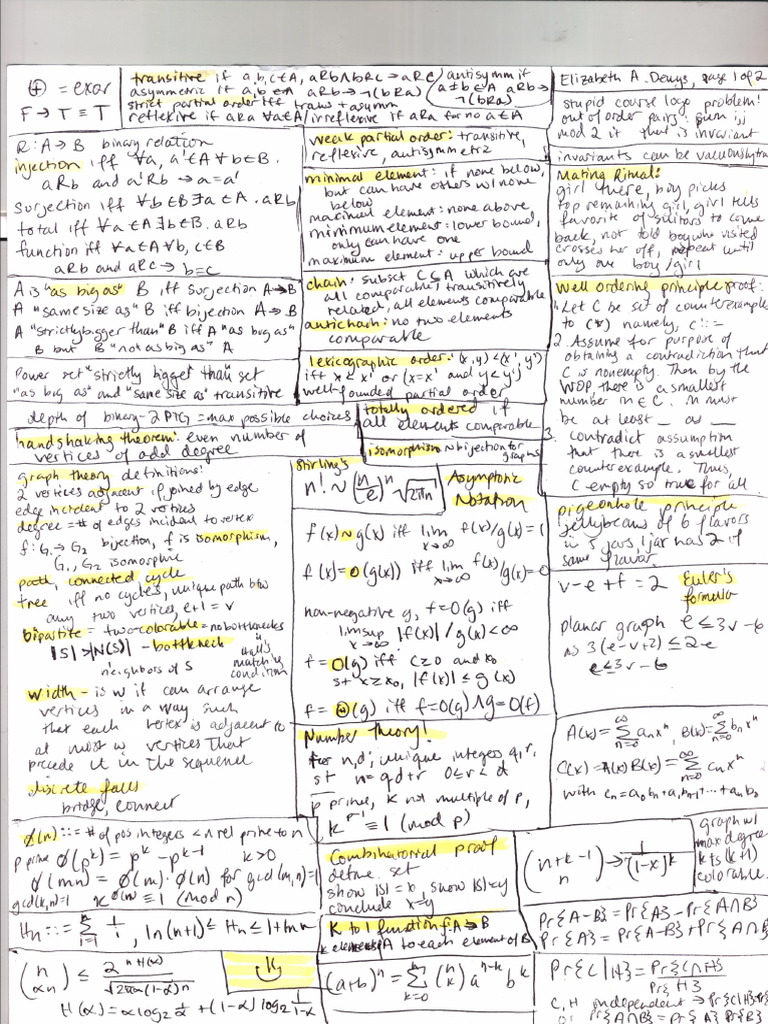 ⊕ = exor
F → T ≡ T
transitive if a,b,c∈A, aRb∧bRc→aRc
asymmetric if a,b∈A aRb → ¬(bRa)
strict partial order iff trans + asymm
reflexive if aRa ∀a∈A/irreflexive if aRa for no a∈A
antisymm if
a≠b∈A aRb→
¬(bRa)
Elizabeth A. Denys, page 1 of 2
stupid course logo problem!
out of order pairs: sum is
mod 2 it that is invariant
invariants can be
R: A→B binary relation
injection iff ∀a, a'∈A ∀b∈B.
aRb and a'Rb → a=a'
surjection iff ∀b∈B ∃a∈A. aRb
total iff ∀a∈A ∃b∈B. aRb
function iff ∀a∈A ∀b, c∈B
aRb and aRc → b=c
weak partial order: transitive,
reflexive, antisymmetric
minimal element: if none below,
but can have others w/ none
below
maximal element: none above
minimum element: lower bound,
only can have one
maximum element: upper bound
Mating Ritual:
girl there, boy picks
top remaining girl, girl tells
favorite of suitors to come
back, not told boy who visited
crosses her off, repeat until
only one boy/girl
A is "as big as" B iff surjection A→B
A "same size as" B iff bijection A→B
A "strictly bigger than" B iff A "as big as"
B but B "not as big as" A
Power set "strictly bigger than" set
"as big as" and "same size as" transitive
chain: subset C⊆A which are
all comparable, transitively
related, all elements comparable
antichain: no two elements
comparable
lexicographic order: (x,y)<(x',y')
iff x<x' or (x=x' and y<y')
well-founded partial order
Well ordering principle proof:
1. Let C be set of counterexamples
to (*) namely, C::=
2. Assume for purpose of
obtaining a contradiction that
C is nonempty. Then by the
WOP there is a smallest
number m∈C. m must
be at least _ as __
3. contradict assumption
that there is a smallest
counterexample. Thus,
C empty so true for all
depth of binary-2PTG = max possible choices
totally ordered if
all elements comparable
handshaking theorem: even number of
vertices of odd degree
isomorphism ≈ bijection for
graphs
graph theory definitions:
2 vertices adjacent if joined by edge
edge incident to 2 vertices
degree = # of edges incident to vertex
f: G₁→G₂ bijection, f is isomorphism,
G₁, G₂ isomorphic
path, connected cycle
tree iff no cycles, unique path b/w
any two vertices, e+1 = v
bipartite = two-colorable = no bottlenecks
|S|>|N(S)| - bottleneck
neighbors of S
Hall's
matching
condition
width - is w if can arrange
vertices in a way such
that each vertex is adjacent to
at most w vertices that
precede it in the sequence
discrete falls
bridge, connect
Stirling's
n! ~ (n/e)ⁿ √2πn
Asymptotic
Notation
f(x)~g(x) iff lim x→∞ f(x)/g(x)=1
f(x)=o(g(x)) iff lim x→∞ f(x)/g(x)=0
non-negative g, f=O(g) iff
limsup x→∞ |f(x)|/g(x)<∞
f=O(g) iff C≥0 and x₀
st x≥x₀, |f(x)|≤g(x)
f=Θ(g) iff f=O(g)∧g=O(f)
pigeonhole principle
jellybeans of 6 flavors
in 5 jars, 1 jar has 2 if
same flavor
v-e+f=2
Euler's
formula
planar graph e≤3v-6
as 3(e-v+2)≤2e
e≤3v-6
Number theory!
For n,d; unique integers q,r,
st n=qd+r 0≤r<d
p prime, k not multiple of p,
k^(p-1)≡1 (mod p)
A(x)=Σ n=0 ∞ aₙxⁿ, B(x)=Σ n=0 ∞ bₙxⁿ
C(x)=A(x)B(x)=Σ n=0 ∞ cₙxⁿ
with cₙ=a₀bₙ+a₁bₙ₋₁+...+aₙb₀
ϕ(n)::=# of pos integers <n rel prime to n
p prime ϕ(p^k)=p^k-p^(k-1) k>0
ϕ(mn)=ϕ(m)·ϕ(n) for gcd(m,n)=1
gcd(k,n)=1 k^ϕ(n)≡1 (mod n)
Combinatorial proof
define set
show |S|=b, show |S|=y
conclude x=y
(n+k-1 n)→1/(1-x)^k
graph w/
max degree
k is (k+1)
colorable
Hₙ::=Σ i=1 n 1/i, ln(n+1)≤Hₙ≤1+ln n
K to 1 function f: A→B
k elements A to each element of B
Pr{A-B}=Pr{A}-Pr{A∩B}
Pr{A}=Pr{A-B}+Pr{A∩B}
(n αn)≤2^(nH(α))/√2πα(1-α)n
H(α)=α log₂ 1/α+(1-α)log₂ 1/1-α
k
(a+b)ⁿ=Σ k=0 n (n k)a^(n-k) b^k
Pr{C|H}=Pr{C∩H}/Pr{H}
C, H independent → Pr{C|H}=
or Pr{A∩B}=Pr{A}Pr{B}